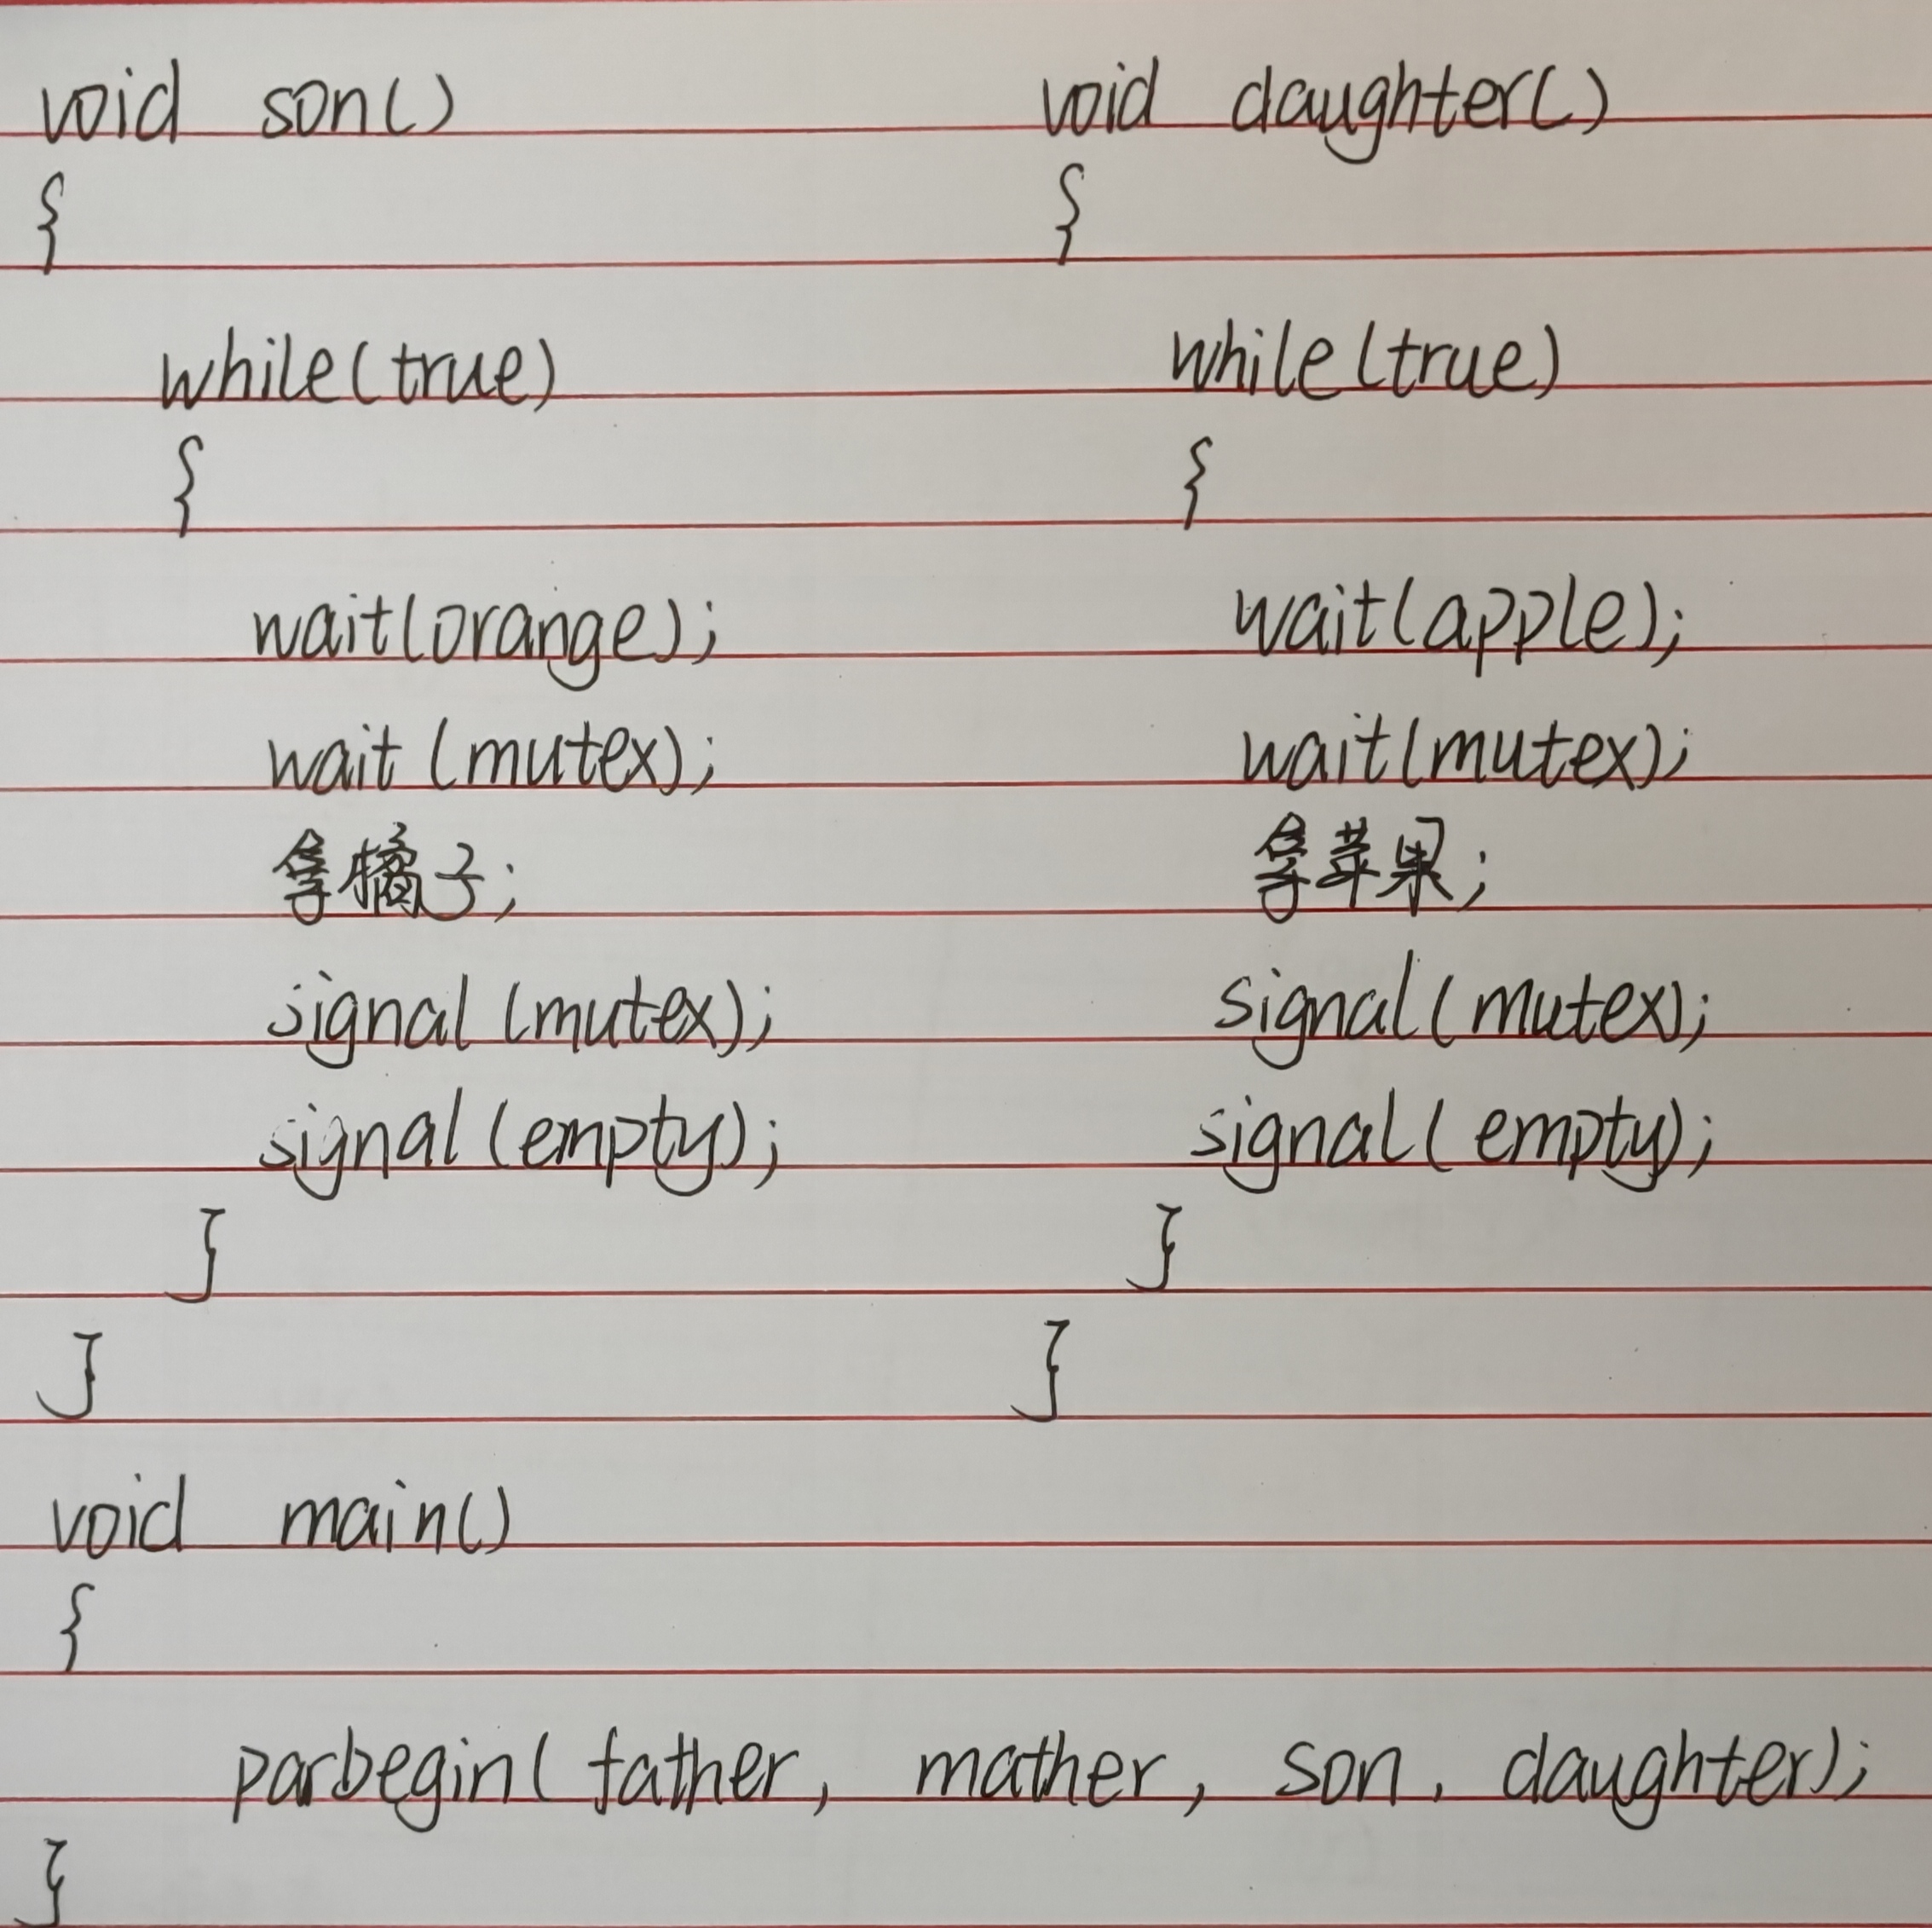 void son()
{
while(true)
{
wait(orange);
wait (mutex);
拿橘子;
signal (mutex);
signal (empty);
}
}
void daughter()
{
while(true)
{
wait(apple);
wait(mutex);
拿苹果;
signal(mutex);
signal( empty);
}
}
void main()
{
parbegin( father, mather, son, daughter);
}